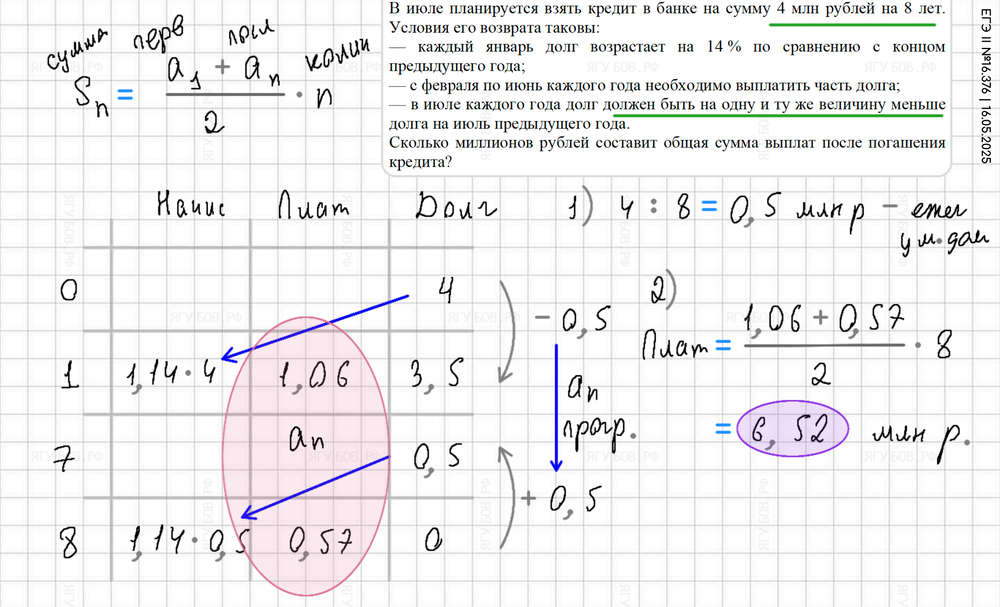 сумма перв посл колич
Sn = a1 + an / 2 · n
В июле планируется взять кредит в банке на сумму 4 млн рублей на 8 лет.
Условия его возврата таковы:
— каждый январь долг возрастает на 14 % по сравнению с концом
предыдущего года;
— с февраля по июнь каждого года необходимо выплатить часть долга;
— в июле каждого года долг должен быть на одну и ту же величину меньше
долга на июль предыдущего года.
Сколько миллионов рублей составит общая сумма выплат после погашения
кредита?
ЕГЭ II №16.376 | 16.05.2025
Начис Плат Долг
0 4
1 1,14·4 1,06 3,5
7 an 0,5
8 1,14·0,5 0,57 0
- 0,5
an
прогр.
+ 0,5
1) 4 : 8 = 0,5 млн р – ежег
ум. дол
2)
Плат = 1,06 + 0,57 / 2 · 8
= 6,52 млн р.
ЯГУБОВ.РФ